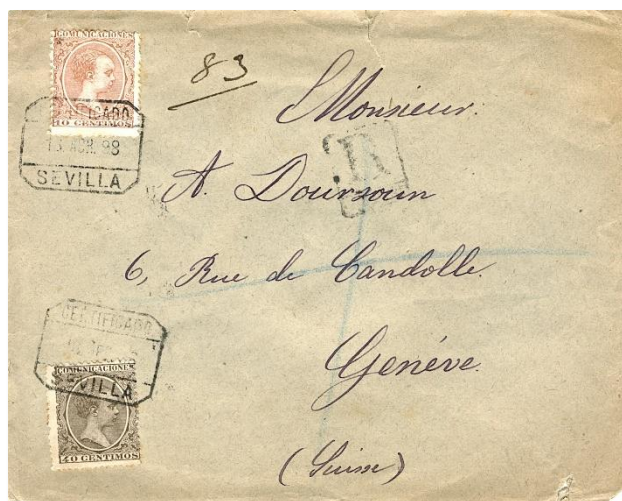 COMUNICACIONES
10 CENTIMOS
CERTIFICADO
13 ABR. 98
SEVILLA
83
Monsieur.
R.
A. Doursoun
6, Rue de Candolle.
Genève.
(Suisse)
CERTIFICADO
SEVILLA
COMUNICACIONES
40 CENTIMOS